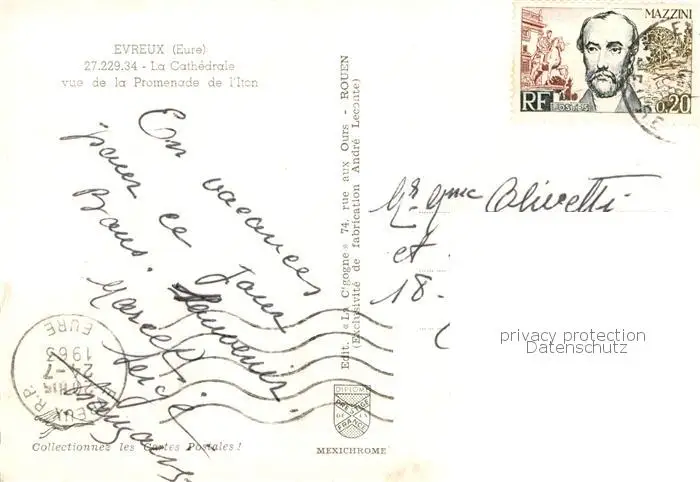 EVREUX (Eure)
27.229.34 - La Cathédrale
vue de la Promenade de l'Iton
En vacances
pour ce jour
Bons Souvenirs.
Marcel
Serge
Edit. «La C'gogne» 74, rue aux Ours - ROUEN
(Exclusivité de fabrication André Leconte)
MAZZINI
RF
POSTES
0,20
Mr. Mme Olivetti
et
18-
privacy protection
Datenschutz
EURE
24-7
1963
R.P.
DIPLOME
PRESTIGE
DE LA
FRANCE
Collectionnez les Cartes Postales!
MEXICHROME